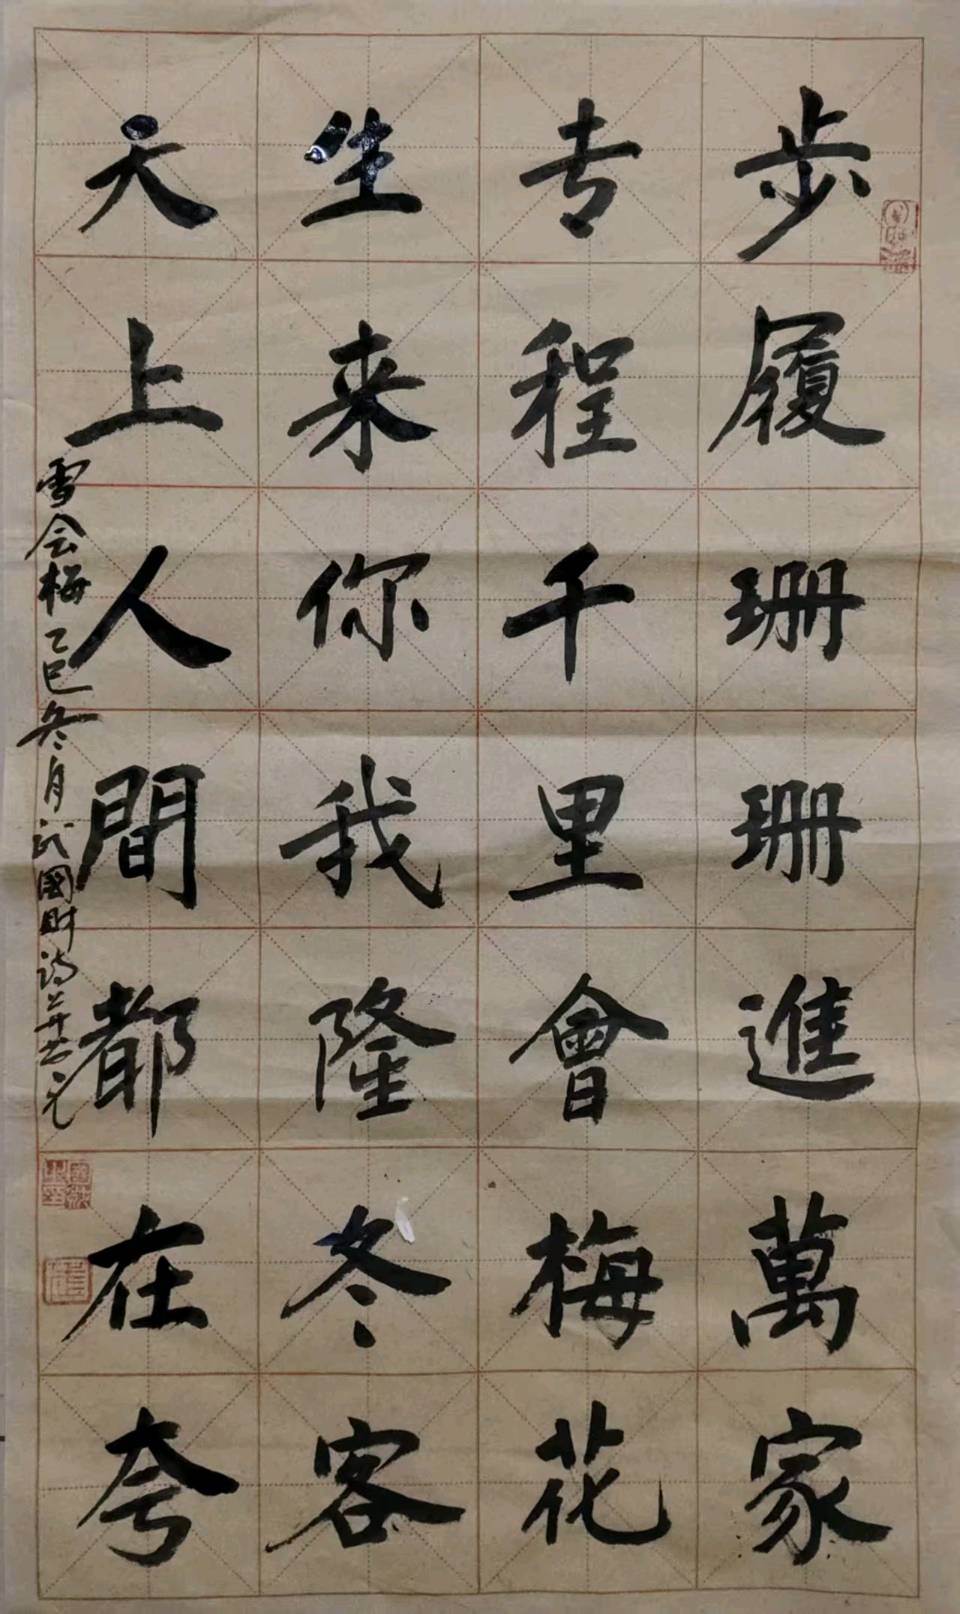 步履珊珊進萬家
专程千里會梅花
生来你我隆冬客
天上人間都在夸
雪会梅乙巳冬月武國財诗